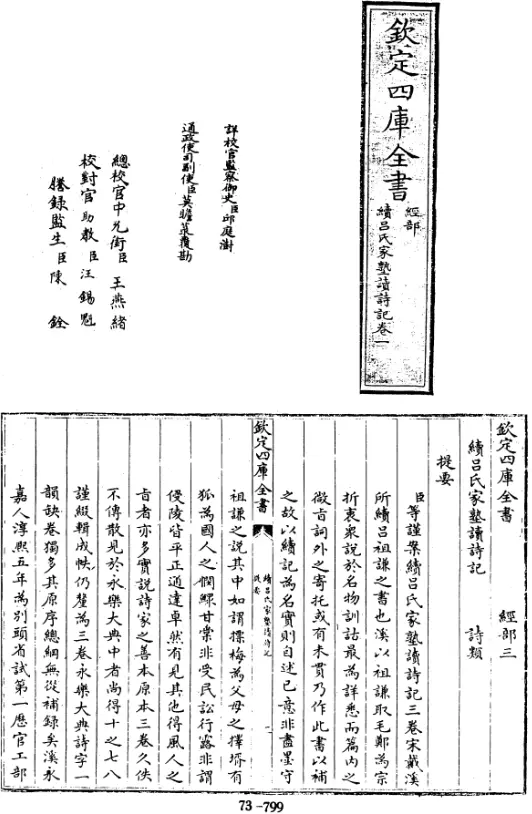 欽定四庫全書
經部
續呂氏家塾讀詩記卷一
詳校官監察御史臣邱庭漋
通政使司副使臣莫瞻菉覆勘
總校官中允銜臣王燕緒
校對官助教臣汪錫魁
謄錄監生臣陳銓
欽定四庫全書 經部三
續呂氏家塾讀詩記 詩類
提要
臣等謹案續呂氏家塾讀詩記三卷宋戴溪
所續呂祖謙之書也溪以祖謙取毛鄭為宗
折衷衆說於名物訓詁最為詳悉而篇內之
微旨詞外之寄托或有未貫乃作此書以補
之故以續記為名實則自述己意非盡墨守
欽定四庫全書
續呂氏家塾讀詩記
提要
一
祖謙之說其中如謂摽梅為父母之擇壻有
狐為國人之憫鰥甘棠非受民訟行露非謂
侵陵皆平正通達卓然有見其他得風人之
旨者亦多實說詩家之善本原本三卷久佚
不傳散見於永樂大典中者尚得十之七八
謹綴輯成帙仍釐為三卷永樂大典詩字一
韻缺卷獨多其原序總綱無從補錄矣溪永
嘉人淳熙五年為別頭省試第一歷官工部
73-799